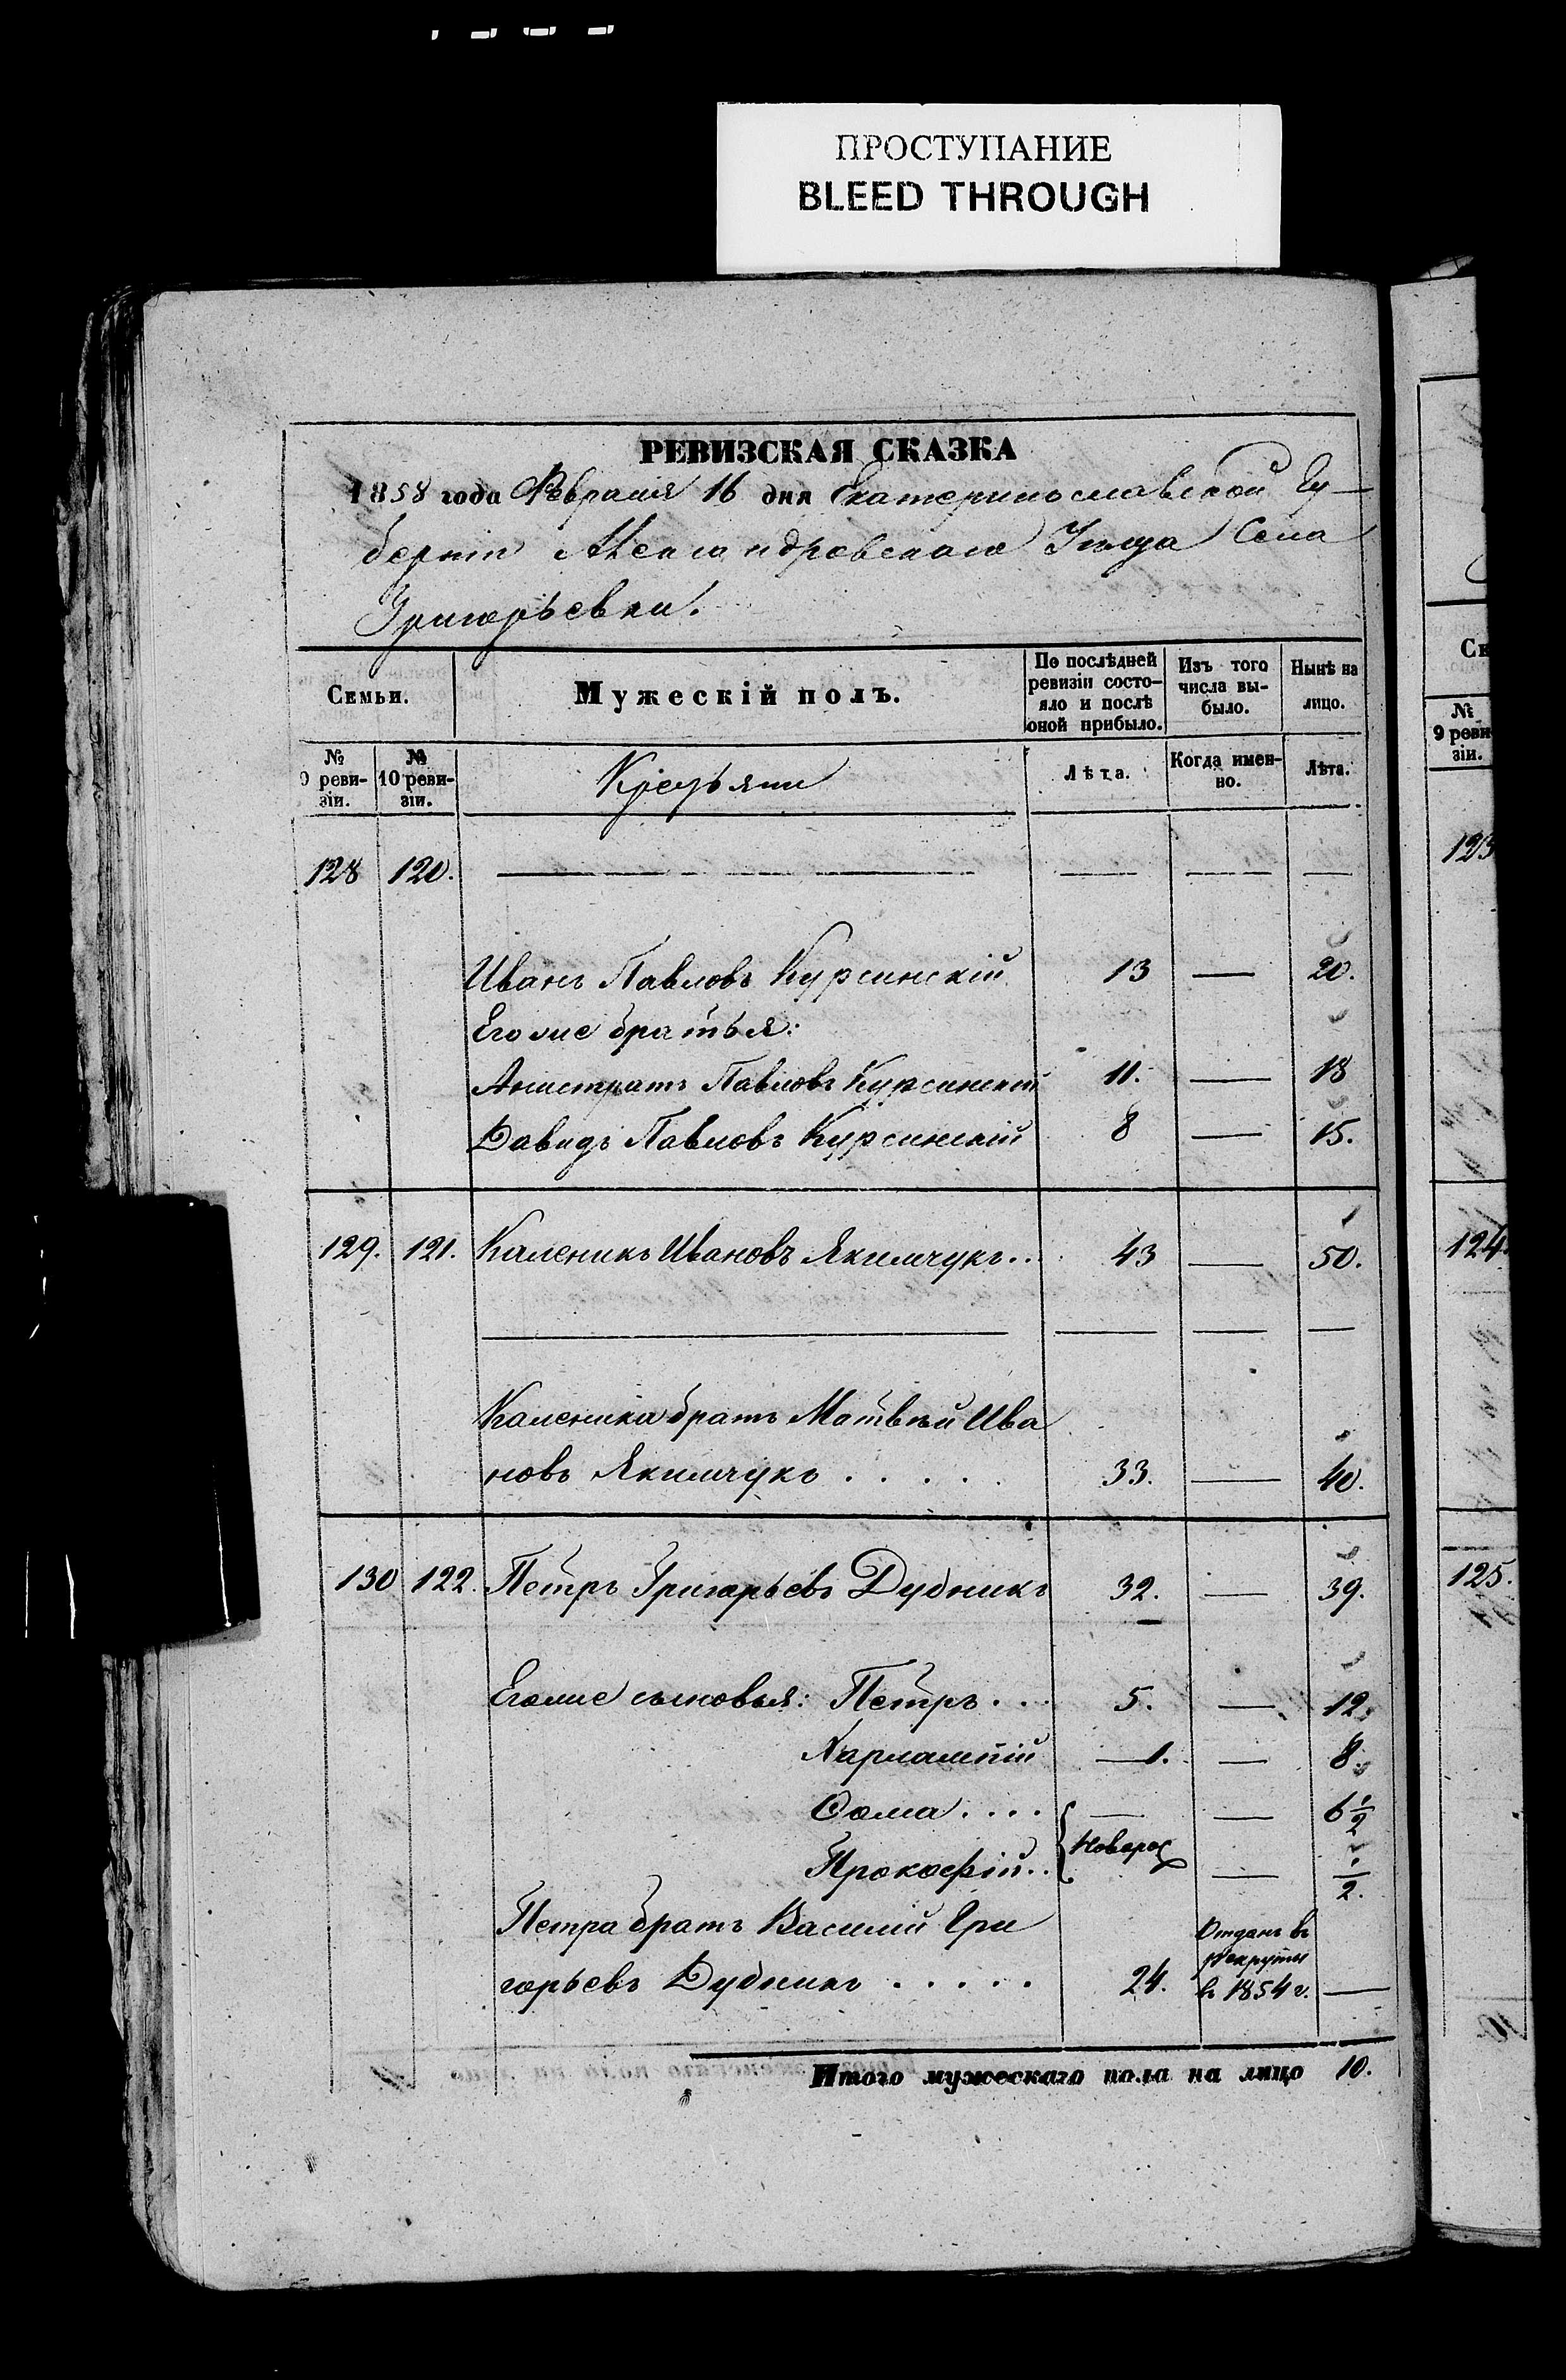 ПРОСТУПАНИЕ
BLEED THROUGH
РЕВИЗСКАЯ СКАЗКА
1858 года Февраля 16 дня Екатеринославской Гу-
берніи Александровскаго Уѣзда Села
Григорьевки.
Семьи.
Мужескій полъ.
По послѣдней ревизіи состо-
яло и послѣ оной прибыло.
Изъ того числа вы-
было.
Нынѣ на лицо.
№ 9 реви-
зіи.
№ 10 реви-
зіи.
Крестьяни
Лѣта.
Когда имен-
но.
Лѣта.
128 120. — — — —
Иванъ Павловъ Курсинскій 13 — 20.
Егоже братья:
Анистратъ Павловъ Курсинскій 11. — 18
Давидъ Павловъ Курсинскій 8 — 15.
129. 121. Каленикъ Ивановъ Якимчукъ.. 43 — 50.
— — — —
Каленика братъ Матвѣй Ива
новъ Якимчукъ . . . . . 33. — 40.
130 122. Петръ Григорьевъ Дубникъ 32. — 39.
Егоже сыновья: Петръ... 5. — 12.
Харлампій 1. — 8.
Ѳома.... — — 6 1/2
Прокофій.. Новорож — 1/2.
Петра братъ Василій Гри
горьевъ Дубникъ . . . . . 24. Отданъ въ рекруты въ 1854 г. —
Итого мужескаго пола на лицо 10.
Се
№ 9 реви-
зіи.
123
124.
125.